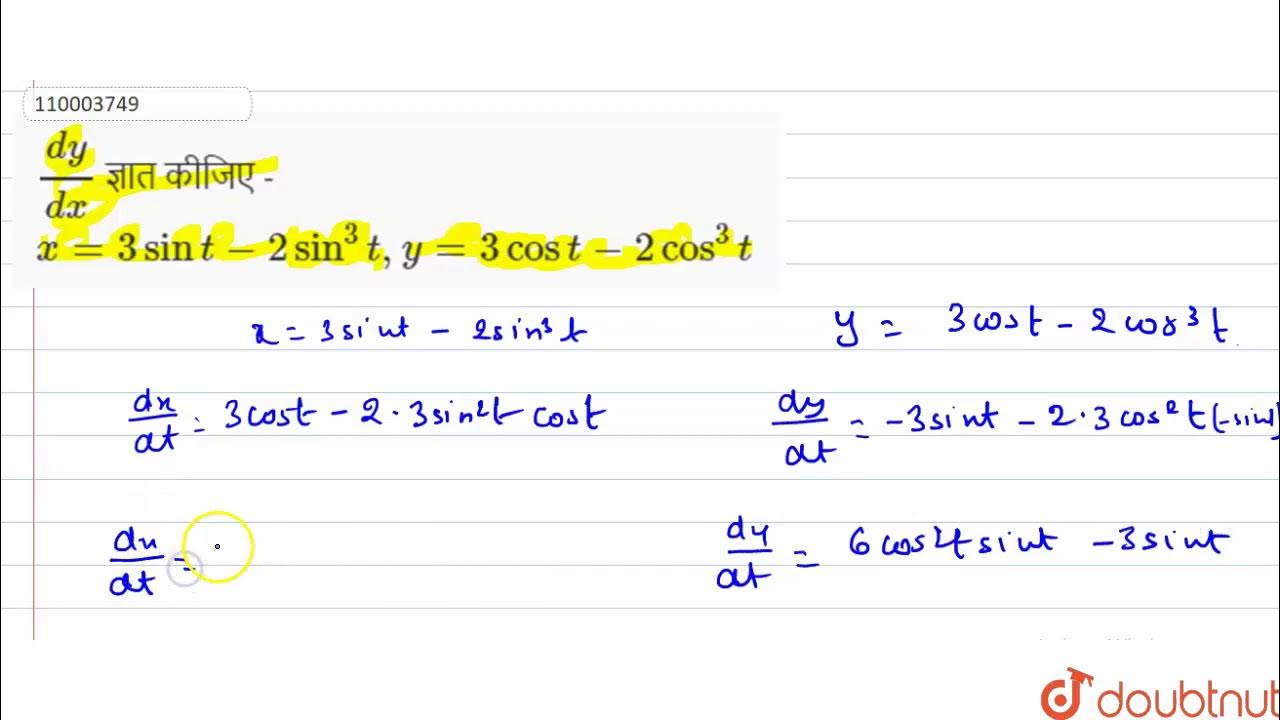 110003749
dy/dx ज्ञात कीजिए -
x = 3 sin t − 2 sin³ t, y = 3 cos t − 2 cos³ t
x = 3 sint - 2sin³ t
y = 3 cost - 2 cos³ t
dx/dt = 3 cost - 2 · 3 sin²t cost
dy/dt = -3 sint - 2 · 3 cos² t (-sint)
dx/dt =
dy/dt = 6 cos²t sint - 3 sint
doubtnut